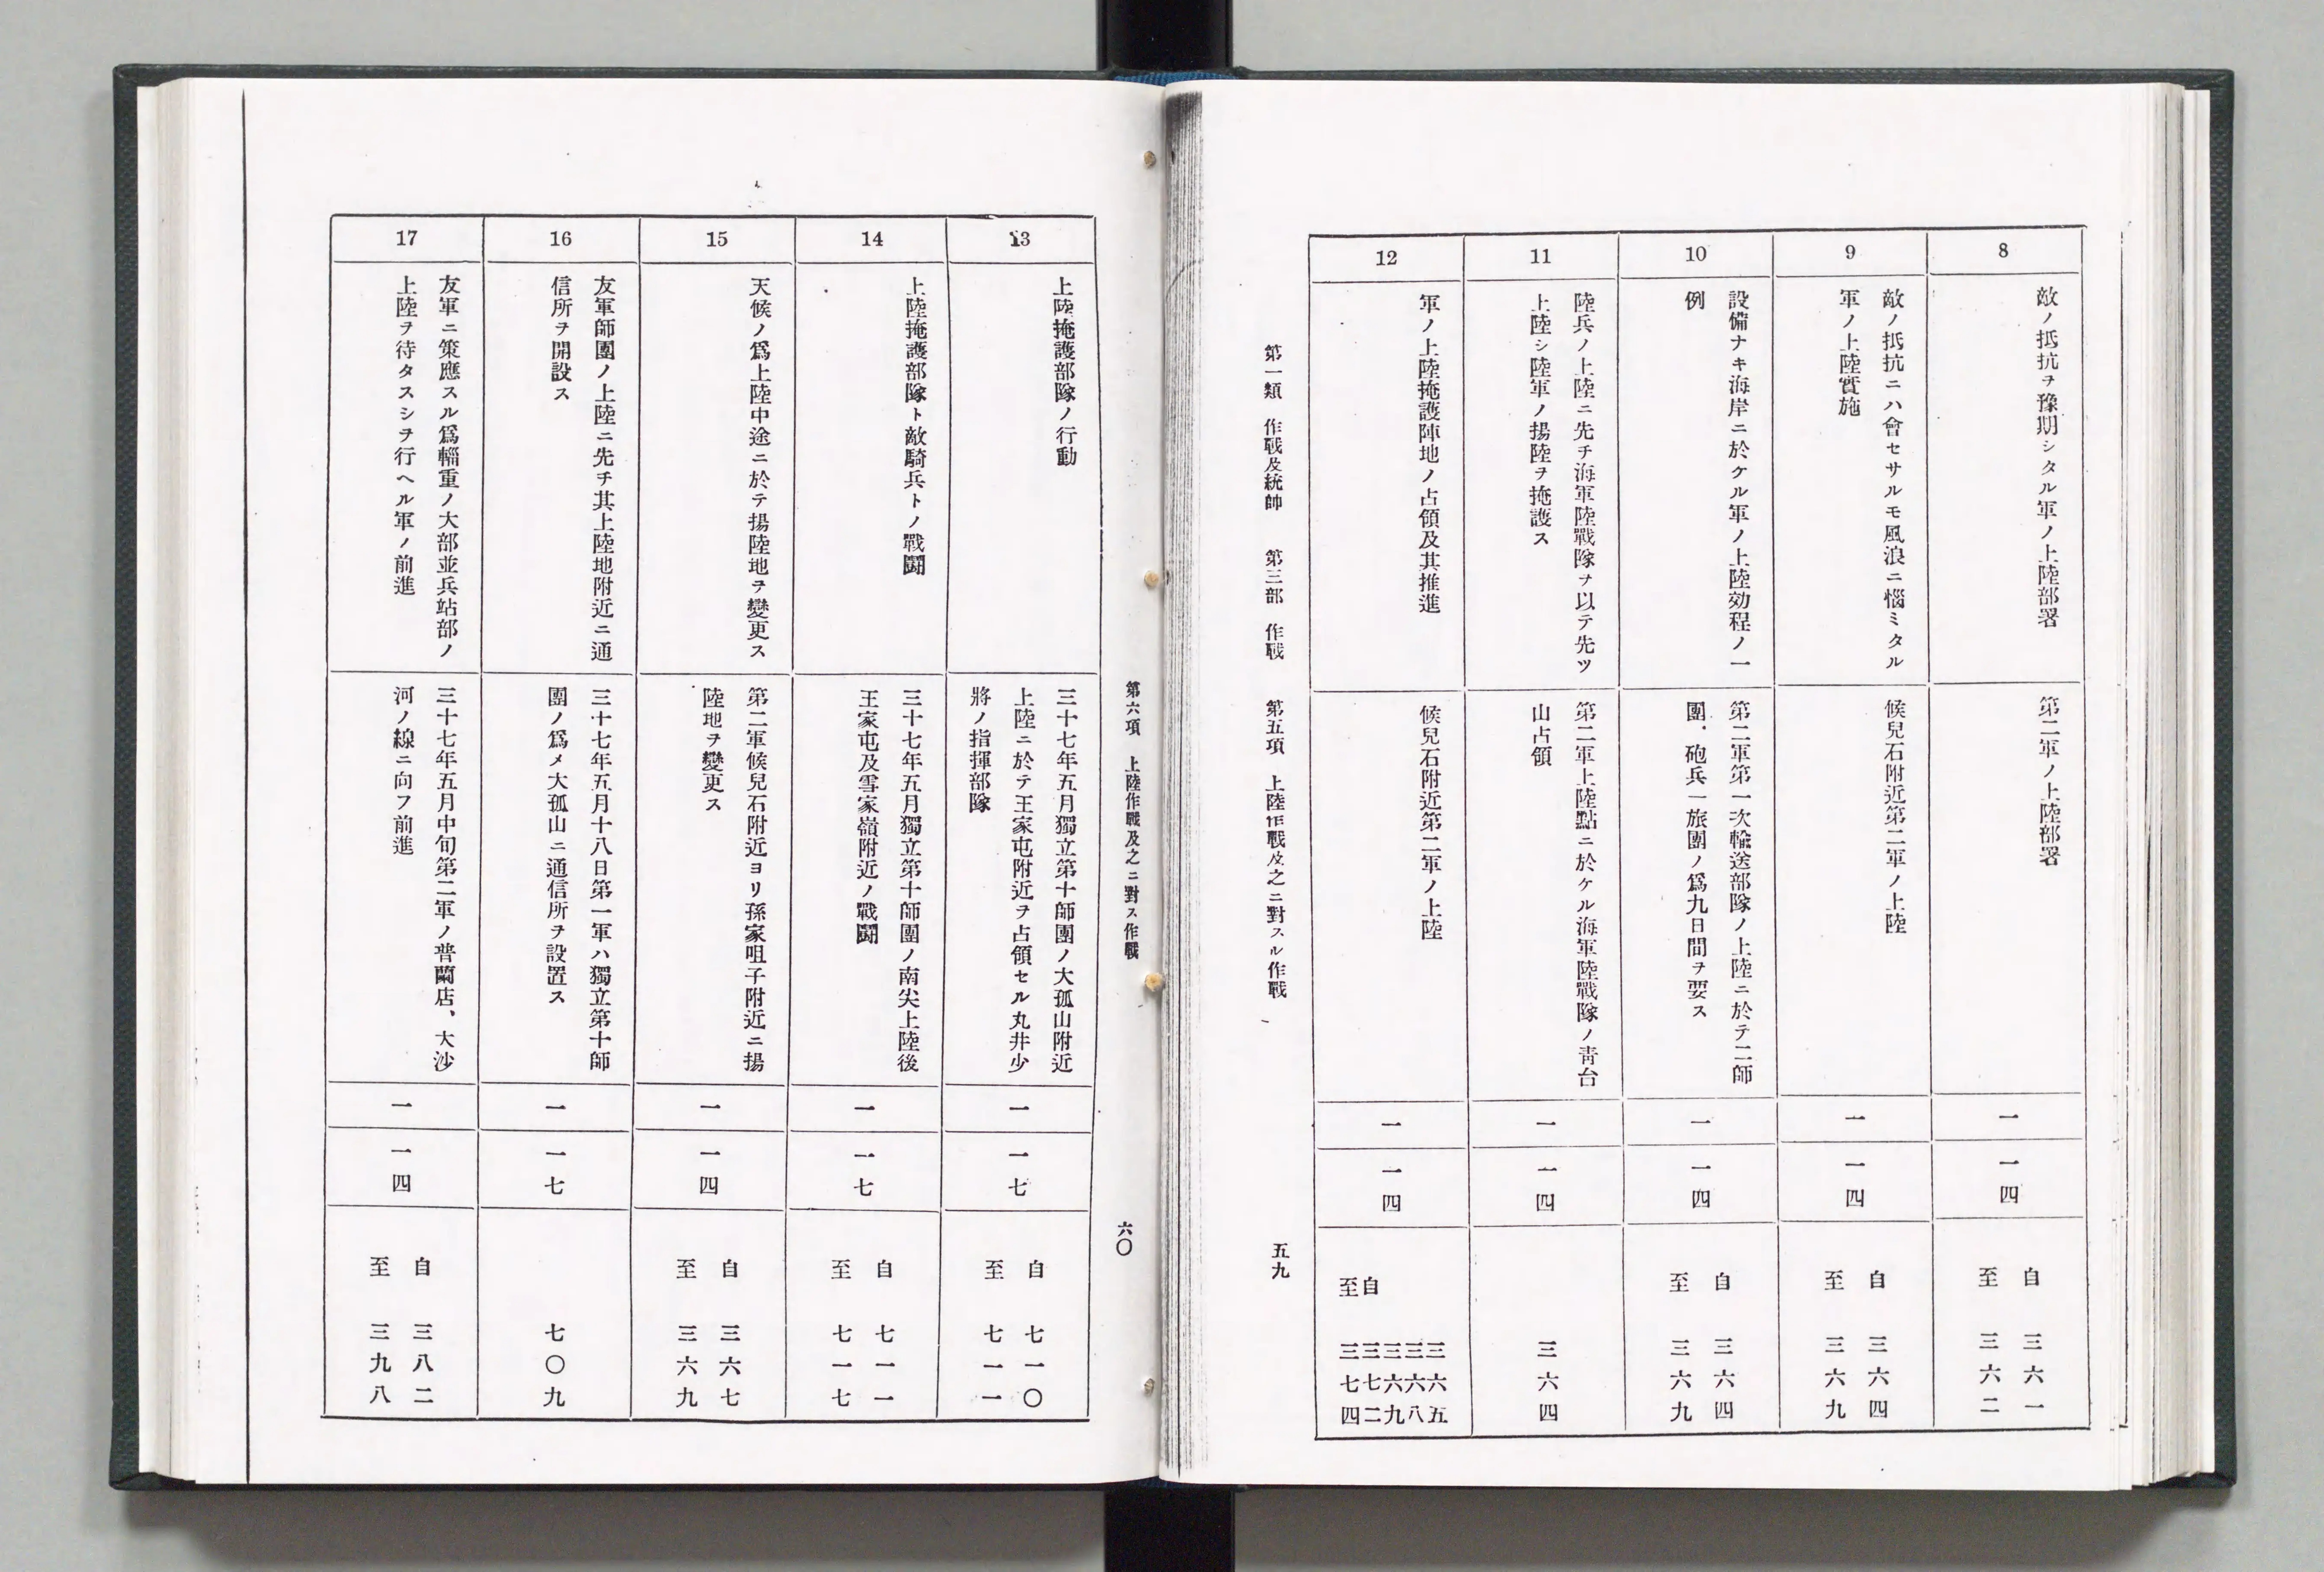 8
敵ノ抵抗ヲ豫期シタル軍ノ上陸部署
第二軍ノ上陸部署
一
一四
自 三六一
至 三六二
9
敵ノ抵抗ニハ會セサルモ風浪ニ惱ミタル
軍ノ上陸實施
候兒石附近第二軍ノ上陸
一
一四
自 三六四
至 三六九
10
設備ナキ海岸ニ於ケル軍ノ上陸効程ノ一
例
第二軍第一次輸送部隊ノ上陸ニ於テ二師
團、砲兵一旅團ノ爲九日間ヲ要ス
一
一四
自 三六四
至 三六九
11
陸兵ノ上陸ニ先チ海軍陸戰隊ヲ以テ先ツ
上陸シ陸軍ノ揚陸ヲ掩護ス
第二軍上陸點ニ於ケル海軍陸戰隊ノ靑台
山占領
一
一四
三六四
12
軍ノ上陸掩護陣地ノ占領及其推進
候兒石附近第二軍ノ上陸
一
一四
三六五
三六八
三六九
自 三七二
至 三七四
第一類 作戰及統帥 第三部 作戰 第五項 上陸作戰及之ニ對スル作戰
五九
第六項 上陸作戰及之ニ對ス作戰
六〇
13
上陸掩護部隊ノ行動
三十七年五月獨立第十師團ノ大孤山附近
上陸ニ於テ王家屯附近ヲ占領セル丸井少
將ノ指揮部隊
一
一七
自 七一〇
至 七一一
14
上陸掩護部隊ト敵騎兵トノ戰鬪
三十七年五月獨立第十師團ノ南尖上陸後
王家屯及雪家嶺附近ノ戰鬪
一
一七
自 七一一
至 七一七
15
天候ノ爲上陸中途ニ於テ揚陸地ヲ變更ス
第二軍候兒石附近ヨリ孫家咀子附近ニ揚
陸地ヲ變更ス
一
一四
自 三六七
至 三六九
16
友軍師團ノ上陸ニ先チ其上陸地附近ニ通
信所ヲ開設ス
三十七年五月十八日第一軍ハ獨立第十師
團ノ爲メ大孤山ニ通信所ヲ設置ス
一
一七
七〇九
17
友軍ニ策應スル爲輜重ノ大部並兵站部ノ
上陸ヲ待タスシテ行ヘル軍ノ前進
三十七年五月中旬第二軍ノ普蘭店、大沙
河ノ線ニ向フ前進
一
一四
自 三八二
至 三九八